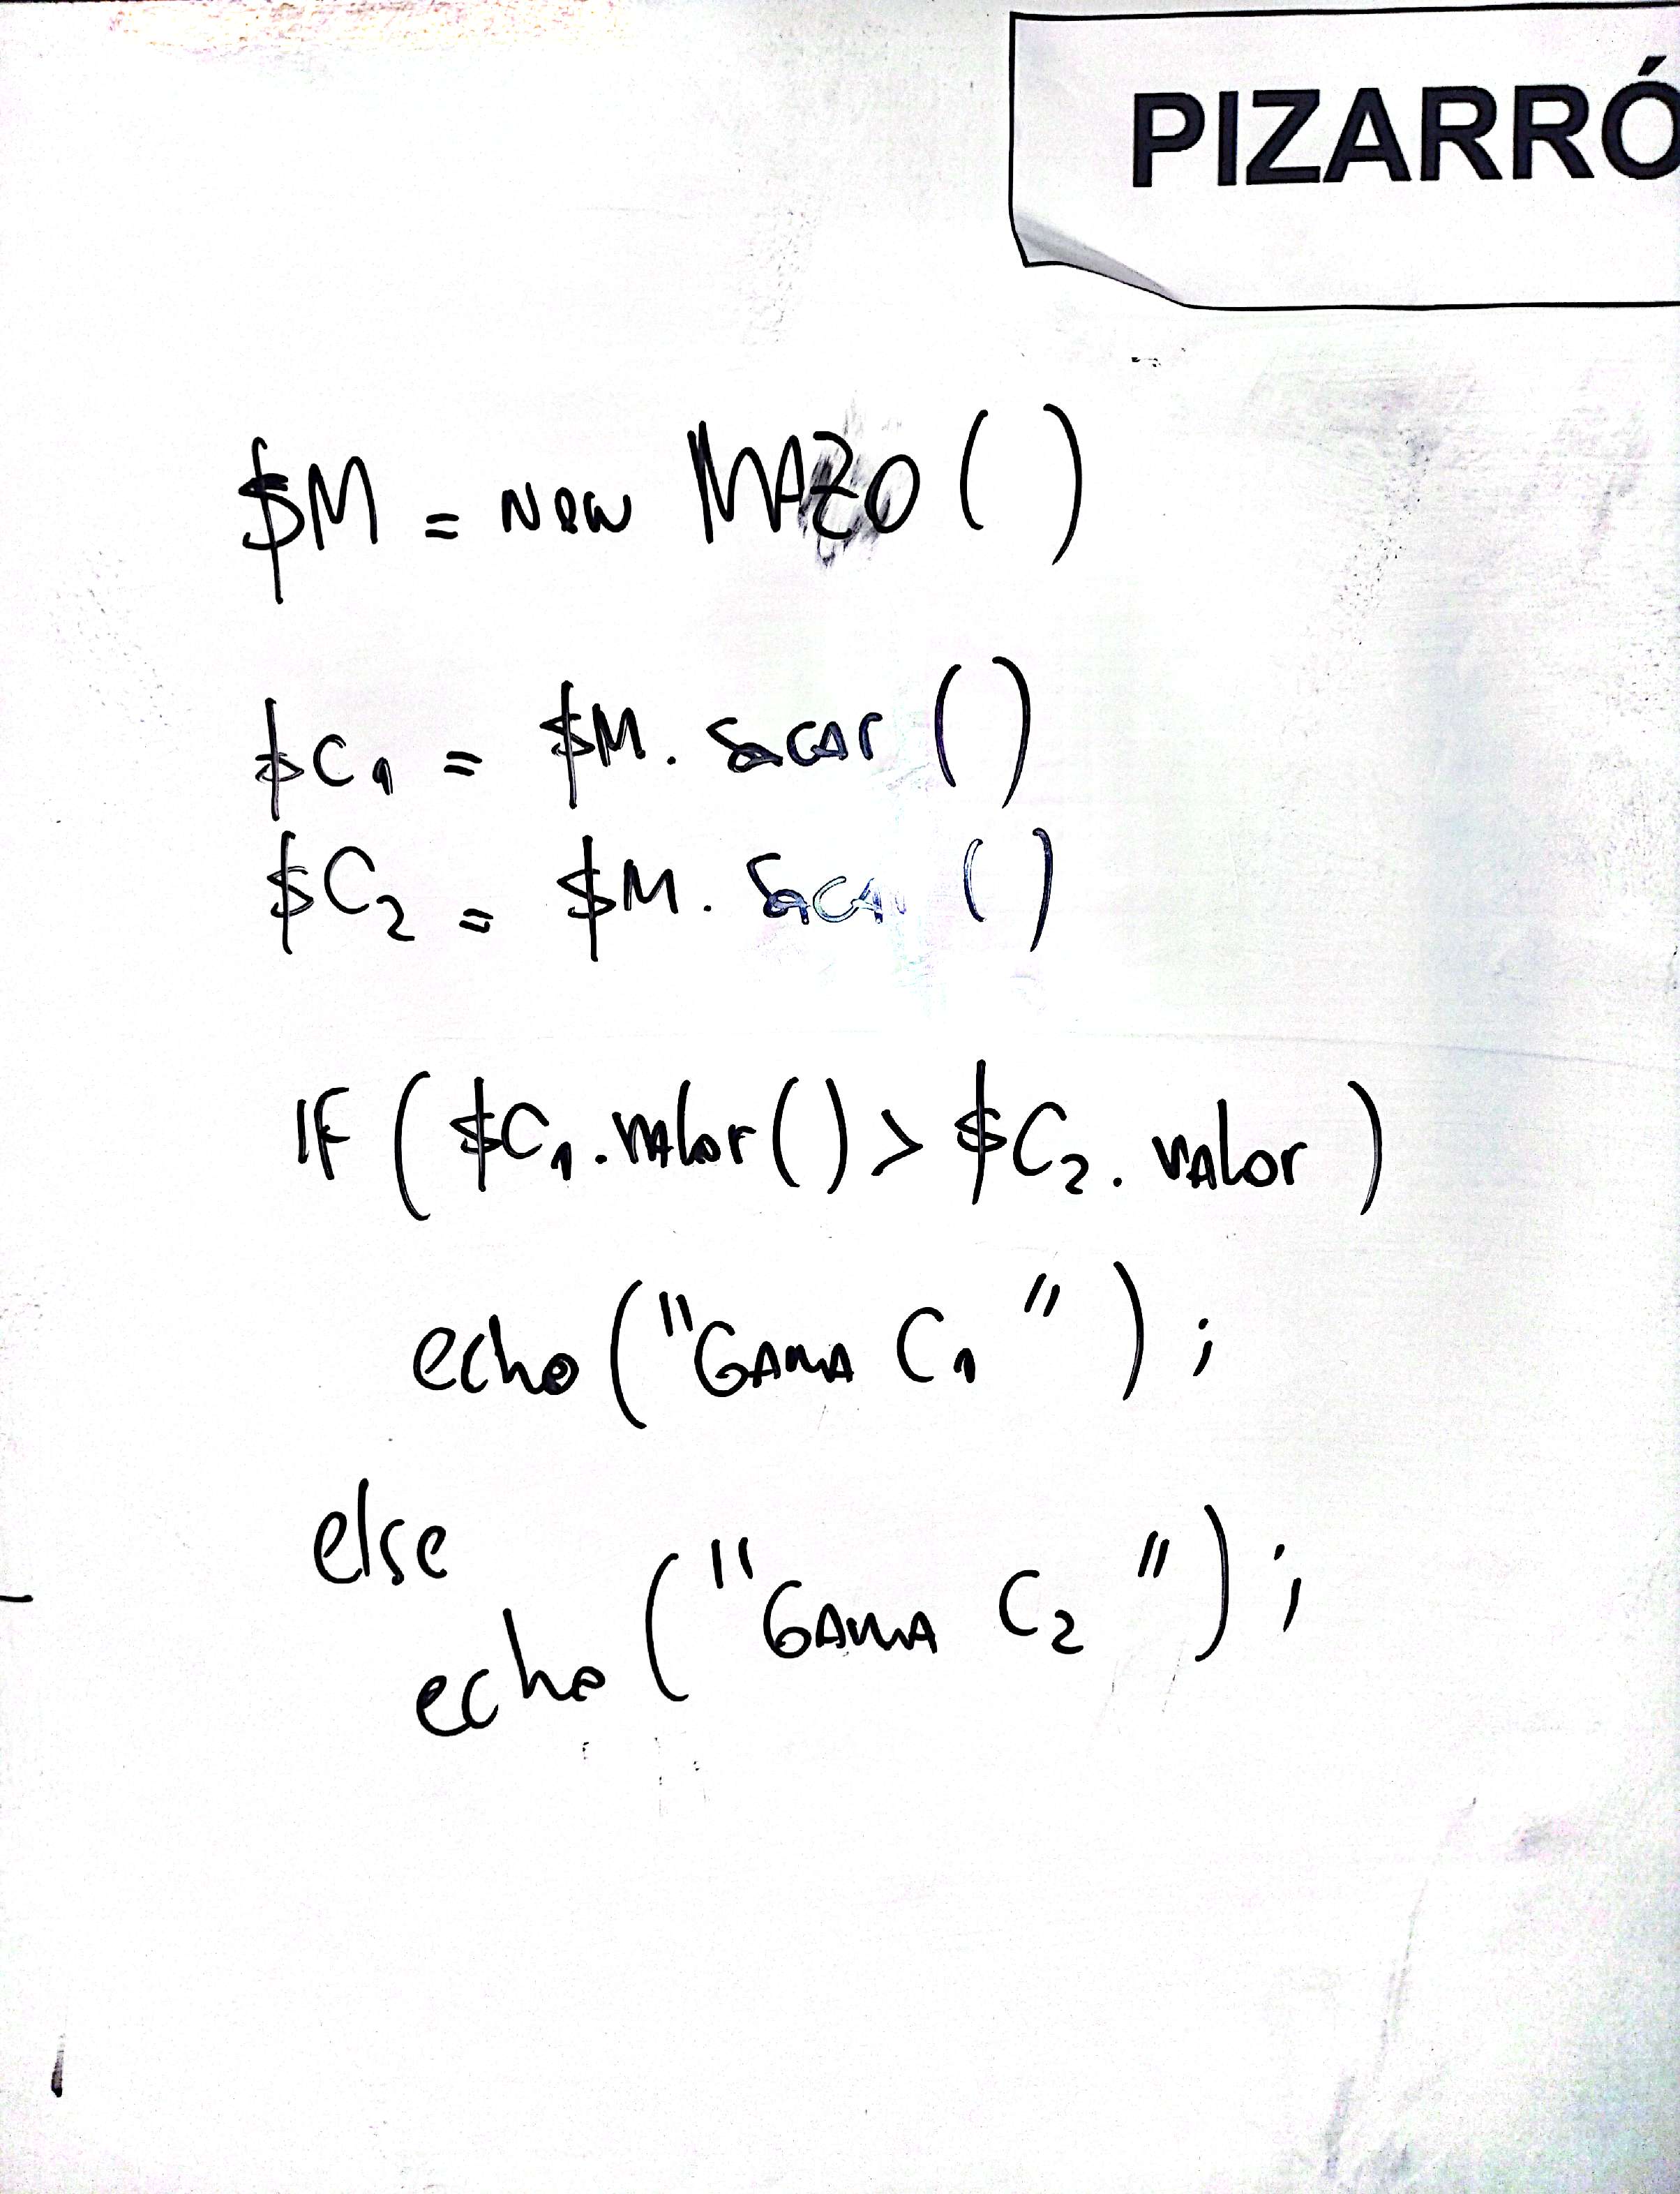 PIZARRÓ
$M = new MAZO ( )
$C1 = $M. sacar ( )
$C2 = $M. ( )
IF ( $C1. valor ( ) > $C2. valor )
echo ( "GANA C1 " ) ;
else
echo ( "GANA C2 " ) ;